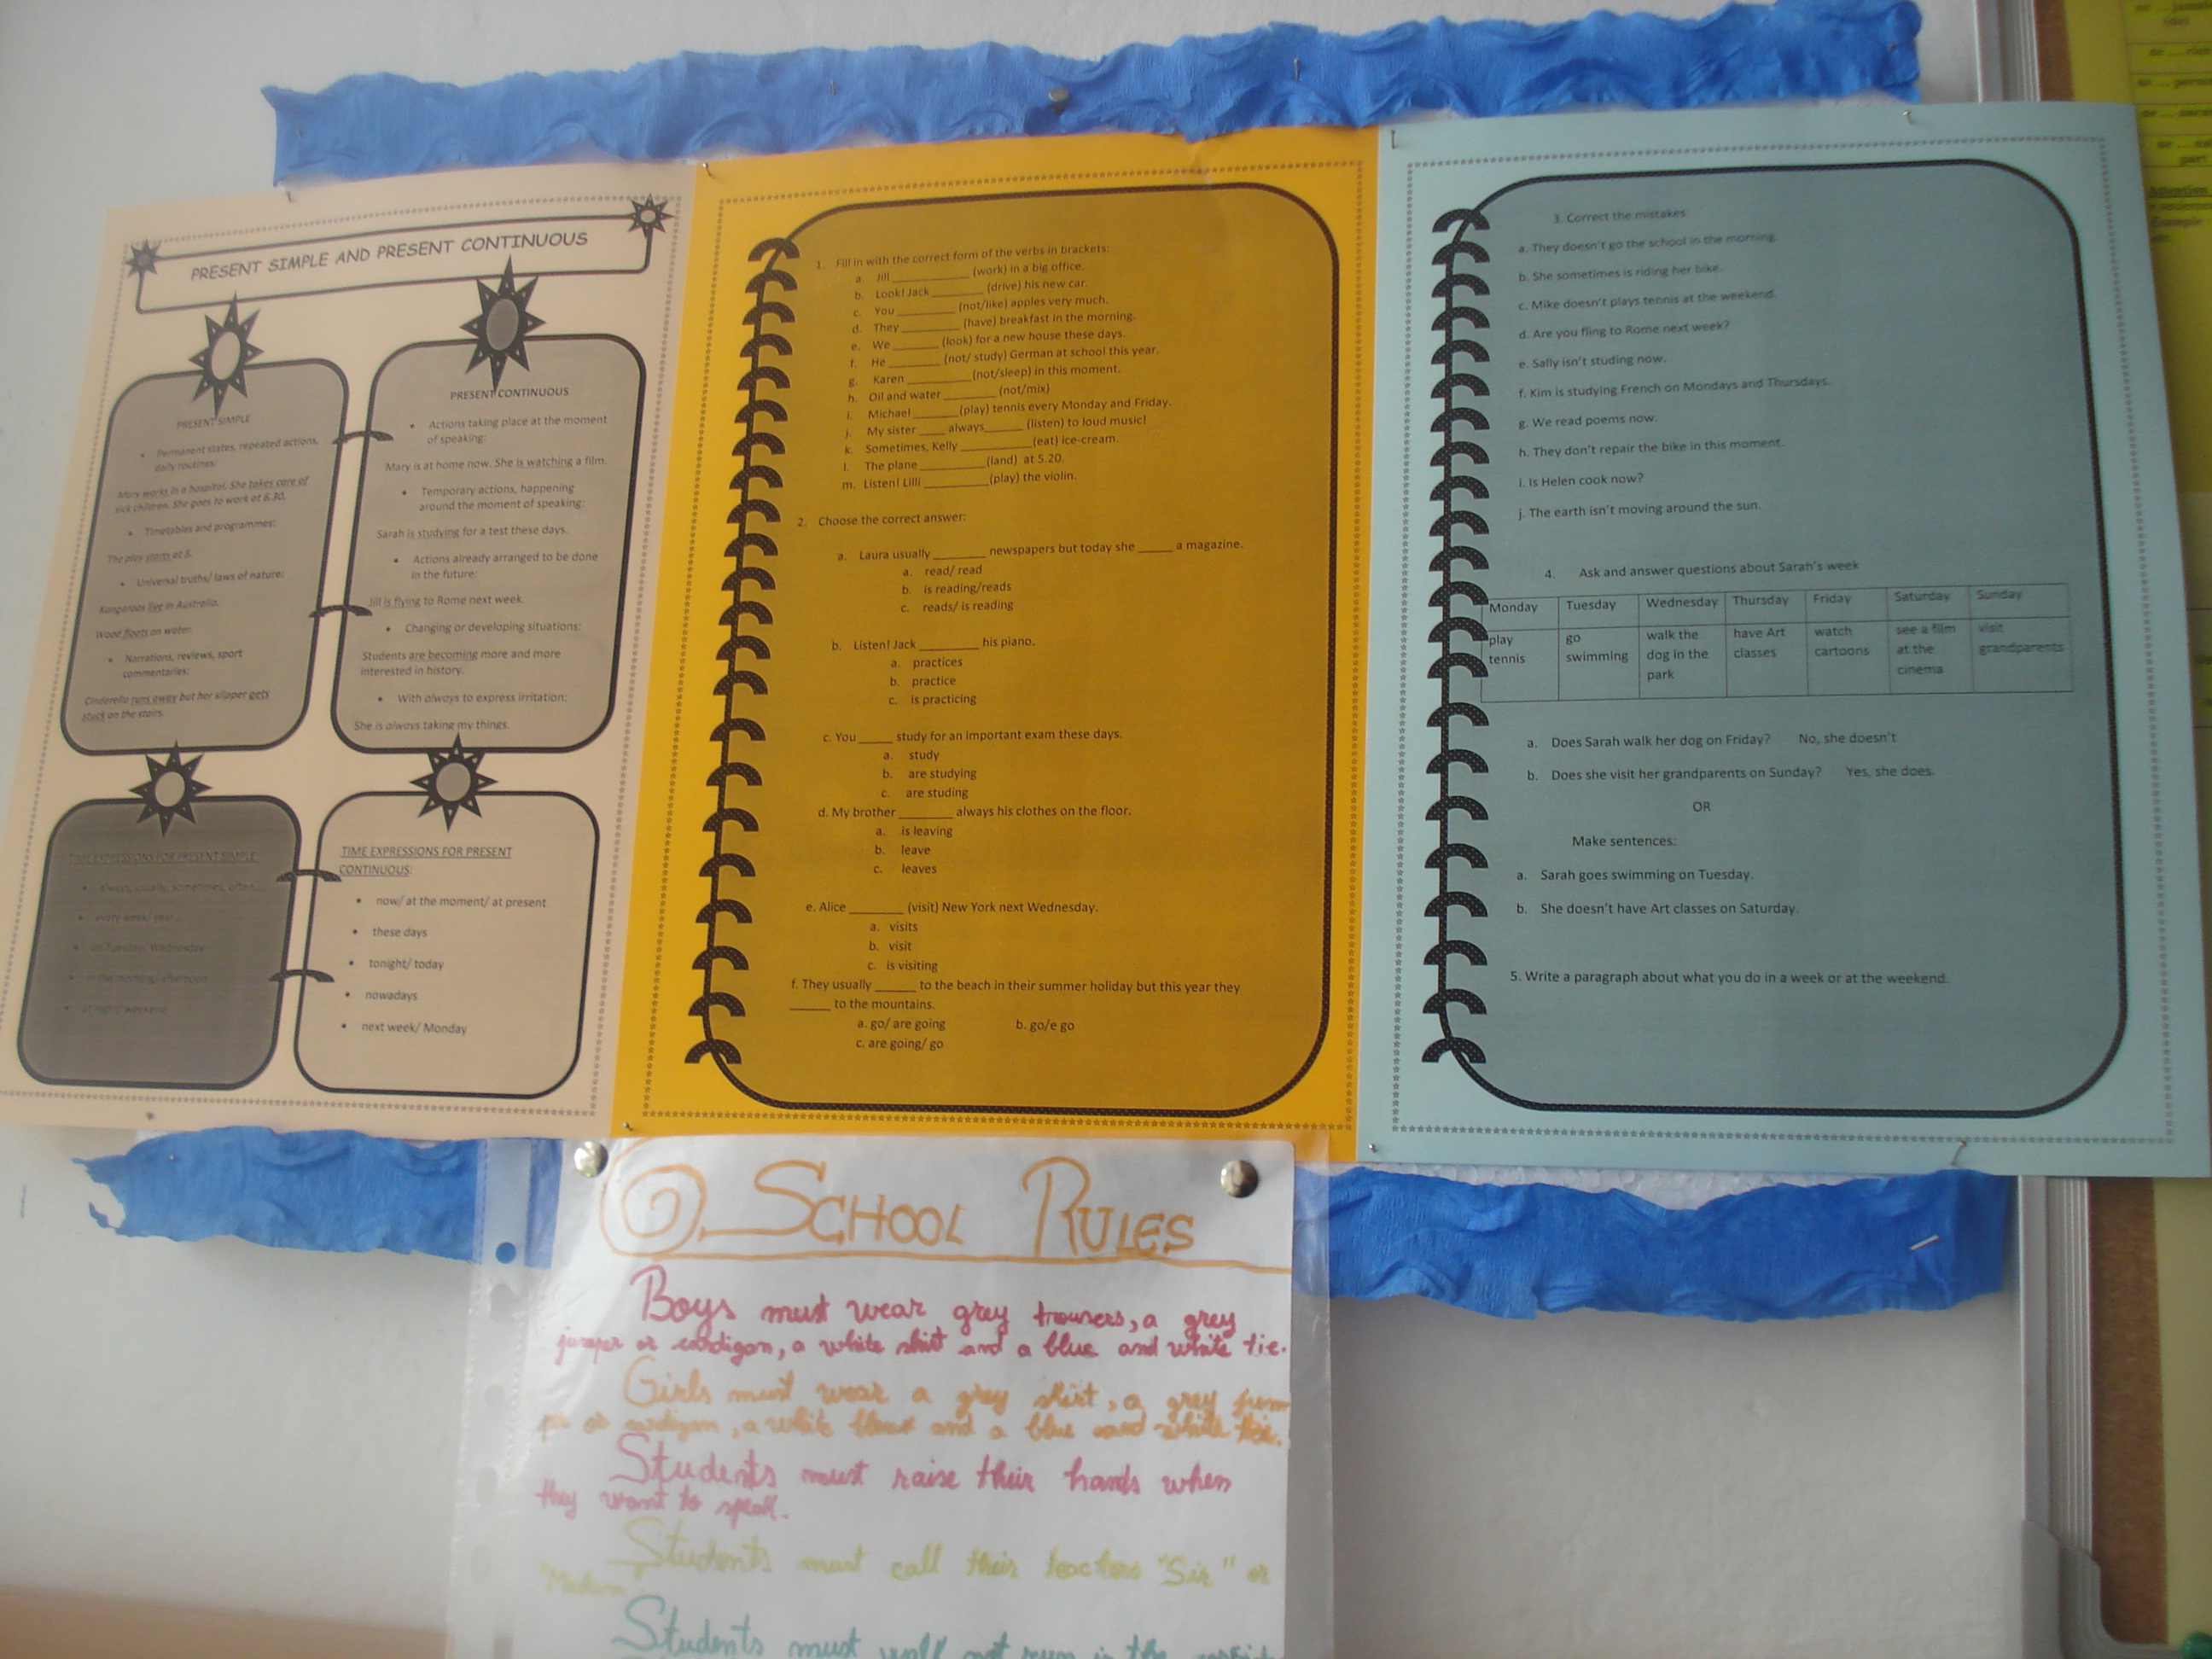 PRESENT SIMPLE AND PRESENT CONTINUOUS
PRESENT SIMPLE
• Permanent states, repeated actions,
daily routines:
Mary works in a hospital. She takes care of
sick children. She goes to work at 6.30.
• Timetables and programmes:
The play starts at 5.
• Universal truths/ laws of nature:
Kangaroos live in Australia.
Wood floats on water.
• Narrations, reviews, sport
commentaries:
Cinderella runs away but her slipper gets
stuck on the stairs.
PRESENT CONTINUOUS
• Actions taking place at the moment
of speaking:
Mary is at home now. She is watching a film.
• Temporary actions, happening
around the moment of speaking:
Sarah is studying for a test these days.
• Actions already arranged to be done
in the future:
Jill is flying to Rome next week.
• Changing or developing situations:
Students are becoming more and more
interested in history.
• With always to express irritation:
She is always taking my things.
TIME EXPRESSIONS FOR PRESENT SIMPLE:
• always, usually, sometimes, often...
• every week/ year...
• on Tuesday/ Wednesday
• in the morning/ afternoon
• at night/ weekend
TIME EXPRESSIONS FOR PRESENT
CONTINUOUS:
• now/ at the moment/ at present
• these days
• tonight/ today
• nowadays
• next week/ Monday
1. Fill in with the correct form of the verbs in brackets:
a. Jill ____________ (work) in a big office.
b. Look! Jack ________ (drive) his new car.
c. You _________ (not/like) apples very much.
d. They _________ (have) breakfast in the morning.
e. We _______ (look) for a new house these days.
f. He ________ (not/ study) German at school this year.
g. Karen __________ (not/sleep) in this moment.
h. Oil and water ________ (not/mix)
i. Michael _______ (play) tennis every Monday and Friday.
j. My sister ____ always______ (listen) to loud music!
k. Sometimes, Kelly ___________ (eat) ice-cream.
l. The plane __________ (land) at 5.20.
m. Listen! Lilli __________ (play) the violin.
2. Choose the correct answer:
a. Laura usually ________ newspapers but today she _____ a magazine.
a. read/ read
b. is reading/reads
c. reads/ is reading
b. Listen! Jack _________ his piano.
a. practices
b. practice
c. is practicing
c. You _____ study for an important exam these days.
a. study
b. are studying
c. are studing
d. My brother ________ always his clothes on the floor.
a. is leaving
b. leave
c. leaves
e. Alice ________ (visit) New York next Wednesday.
a. visits
b. visit
c. is visiting
f. They usually ______ to the beach in their summer holiday but this year they
______ to the mountains.
a. go/ are going b. go/e go
c. are going/ go
3. Correct the mistakes:
a. They doesn't go the school in the morning.
b. She sometimes is riding her bike.
c. Mike doesn't plays tennis at the weekend.
d. Are you fling to Rome next week?
e. Sally isn't studing now.
f. Kim is studying French on Mondays and Thursdays.
g. We read poems now.
h. They don't repair the bike in this moment.
i. Is Helen cook now?
j. The earth isn't moving around the sun.
4. Ask and answer questions about Sarah's week
Monday Tuesday Wednesday Thursday Friday Saturday Sunday
play go walk the have Art watch see a film visit
tennis swimming dog in the classes cartoons at the grandparents
park cinema
a. Does Sarah walk her dog on Friday? No, she doesn't.
b. Does she visit her grandparents on Sunday? Yes, she does.
OR
Make sentences:
a. Sarah goes swimming on Tuesday.
b. She doesn't have Art classes on Saturday.
5. Write a paragraph about what you do in a week or at the weekend.
SCHOOL RULES
Boys must wear grey trousers, a grey
jumper or cardigan, a white shirt and a blue and white tie.
Girls must wear a grey skirt, a grey jum
per or cardigan, a white blouse and a blue and white tie.
Students must raise their hands when
they want to speak.
Students must call their teachers "Sir" or
"Madam"
Students must walk not run in the